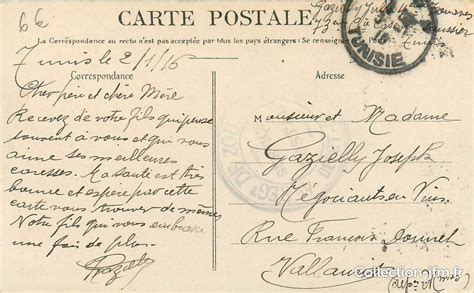 6 f
CARTE POSTALE
La Correspondance au recto n'est pas acceptée par tous les pays étrangers (Se renseigner
Correspondance
Tunis le 2/1/16
Cher père et chère Mère
Recevez de votre fils qui pense
souvent à vous et qui vous
aime ses meilleures
caresses. La santé est très
bonne et espère que cette
carte vous trouver de même
Votre fils qui vous embrasse
une fois de plus.
Gazielly
TUNISIE
Monsieur et Madame
Gazielly Joseph
Négociant en Vins
Rue François
Vallauris
(Alp. Mmes)
Collection-jfm.fr